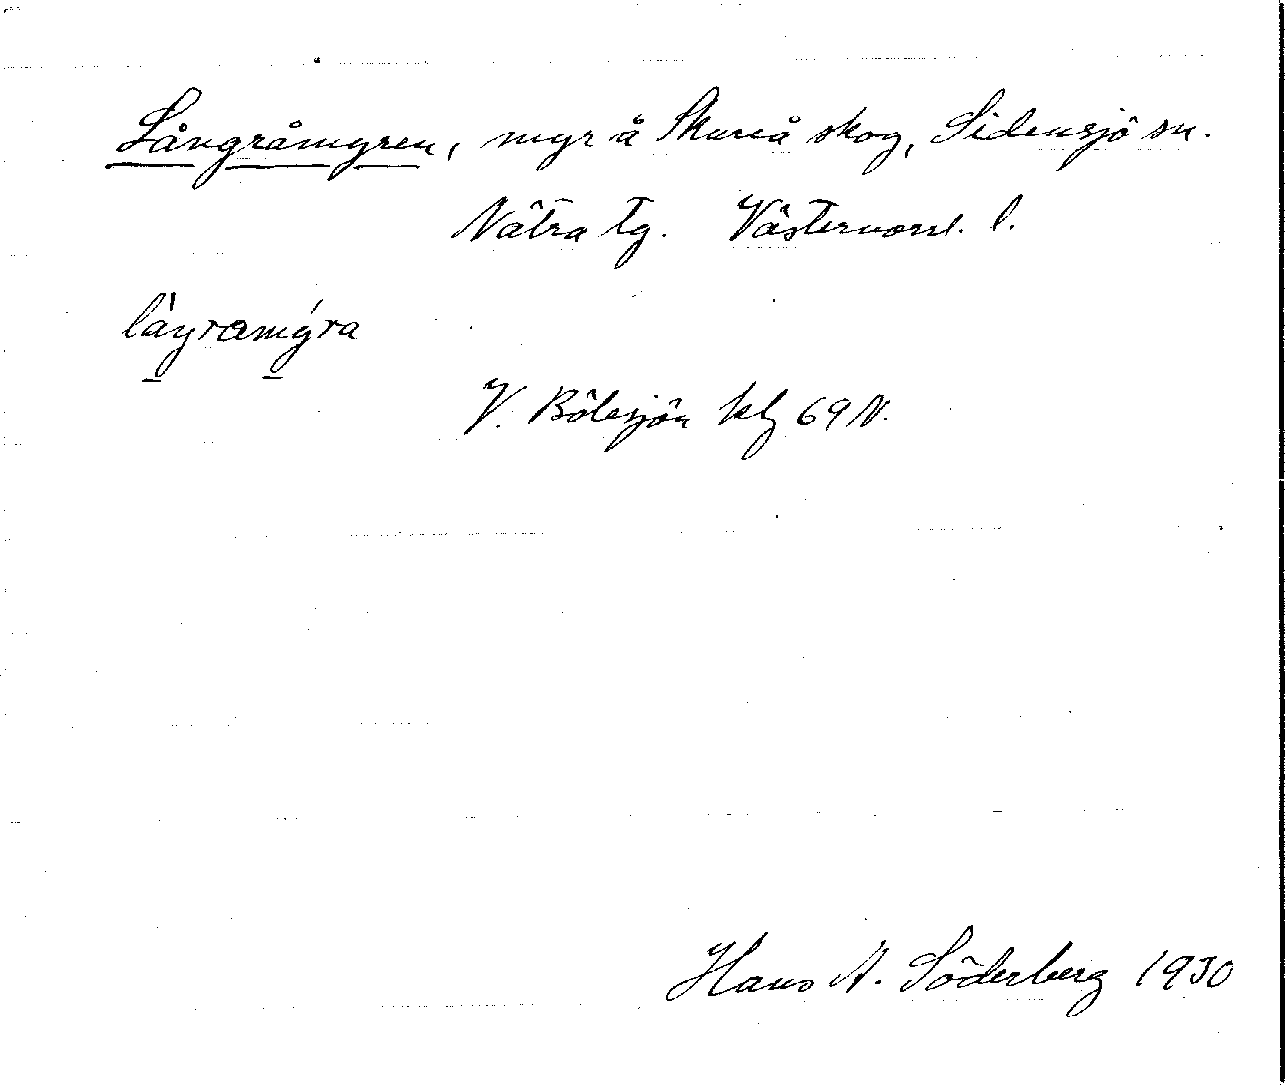 Långråmyren, myr å Skureå skog, Sidensjö sn.
Nätra tg. Västernorrl. l.
V. Bölesjön kbl 69 N.
Hans A. Söderberg 1930